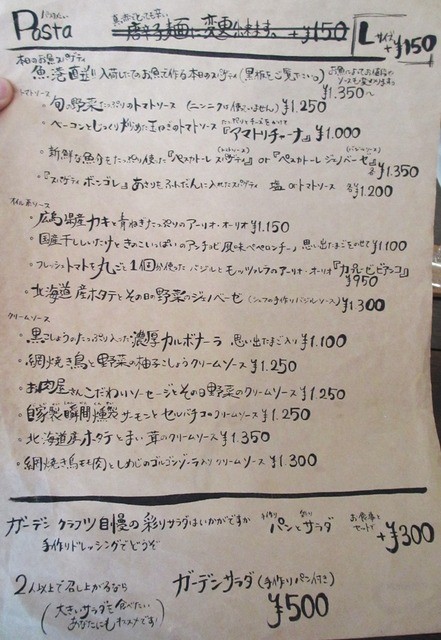 Pasta
唐辛子麺に変更出来ます。 +¥150
Lサイズ +¥150
本日のお魚スパゲティ
魚港直送!! 入荷したてのお魚で作る本日のスパゲティ (黒板をご覧下さい。)
¥1.350〜
トマトソース
旬の野菜たっぷりのトマトソース (ニンニクは使いません) ¥1.250
ベーコンとじっくり炒めた玉ねぎのトマトソース たっぷりとチーズをかけて『アマトリチャーナ』 ¥1.000
新鮮な魚介をたっぷり使った『ペスカトーレ スパゲティ』 or 『ペスカトーレ ジェノベーゼ』
各¥1.350
『スパゲティ ボンゴレ』 あさりをふんだんに入れたスパゲティ 塩 or トマトソース 各¥1.200
オイル系ソース
広島県産カキと青ねぎたっぷりのアーリオ・オーリオ ¥1.150
国産干ししいたけときのこいっぱいのアンチョビ風味ペペロンチーノ 思い出たまごをのせて ¥1100
フレッシュトマトを丸ごと1個分使ったバジルとモッツァレラのアーリオ・オーリオ
¥950
北海道産ホタテとその日の野菜のジェノベーゼ (シェフの手作りバジルソース) ¥1300
クリームソース
黒こしょうのたっぷり入った濃厚カルボナーラ 思い出たまご入り ¥1.100
網焼き鳥と野菜の柚子こしょうクリームソース ¥1.250
お肉屋さんこだわりソーセージとその日野菜のクリームソース ¥1250
自家製瞬間燻製サーモンとセルバチコのクリームソース ¥1.250
北海道産ホタテとまい茸のクリームソース ¥1.350
網焼き鳥モモ肉としめじのゴルゴンゾーラ入りクリームソース ¥1.300
ガーデン クラフツ自慢の彩りサラダはいかがですか
手作りドレッシングでどうぞ
手作り パンと 彩り サラダ お食事とセットで +¥300
2人以上で召し上がるなら
ガーデンサラダ (手作りパン付き)
(大きいサラダを食べたいあなたにもオススメです!)
¥500